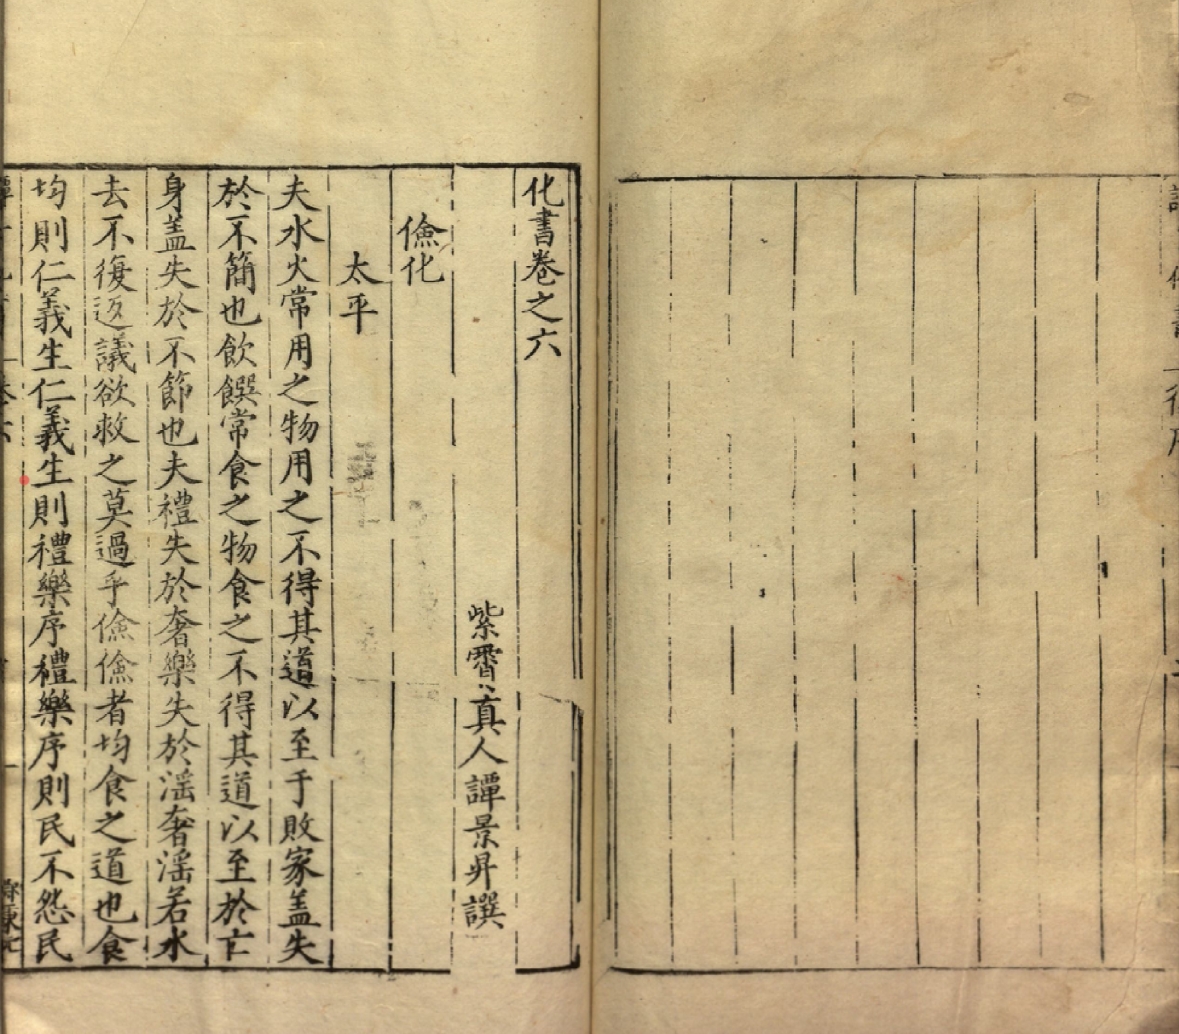 化書卷之六
紫霄真人譚景昇撰
儉化
太平
夫水火常用之物用之不得其道以至于敗家盖失
於不簡也飲饌常食之物食之不得其道以至於亡
身盖失於不節也夫禮失於奢樂失於滛奢滛若水
去不復返議欲救之莫過乎儉儉者均食之道也食
均則仁義生仁義生則禮樂序禮樂序則民不怨民